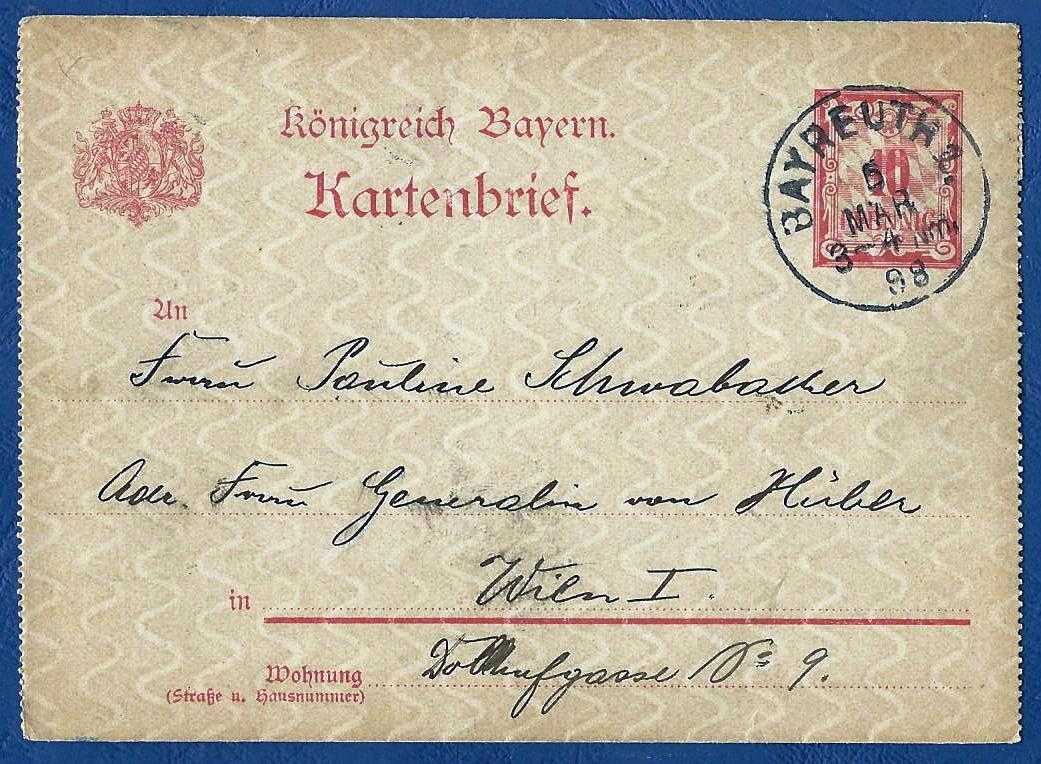 Königreich Bayern.
Kartenbrief.
BAYREUTH 2.
5
MAR
3-4 nm.
98
10
PFENNIG
An
Frau Pauline Schwabacher
Adr. Frau Generalin von Huber
in Wien I.
Wohnung
(Straße u. Hausnummer)
No 9.